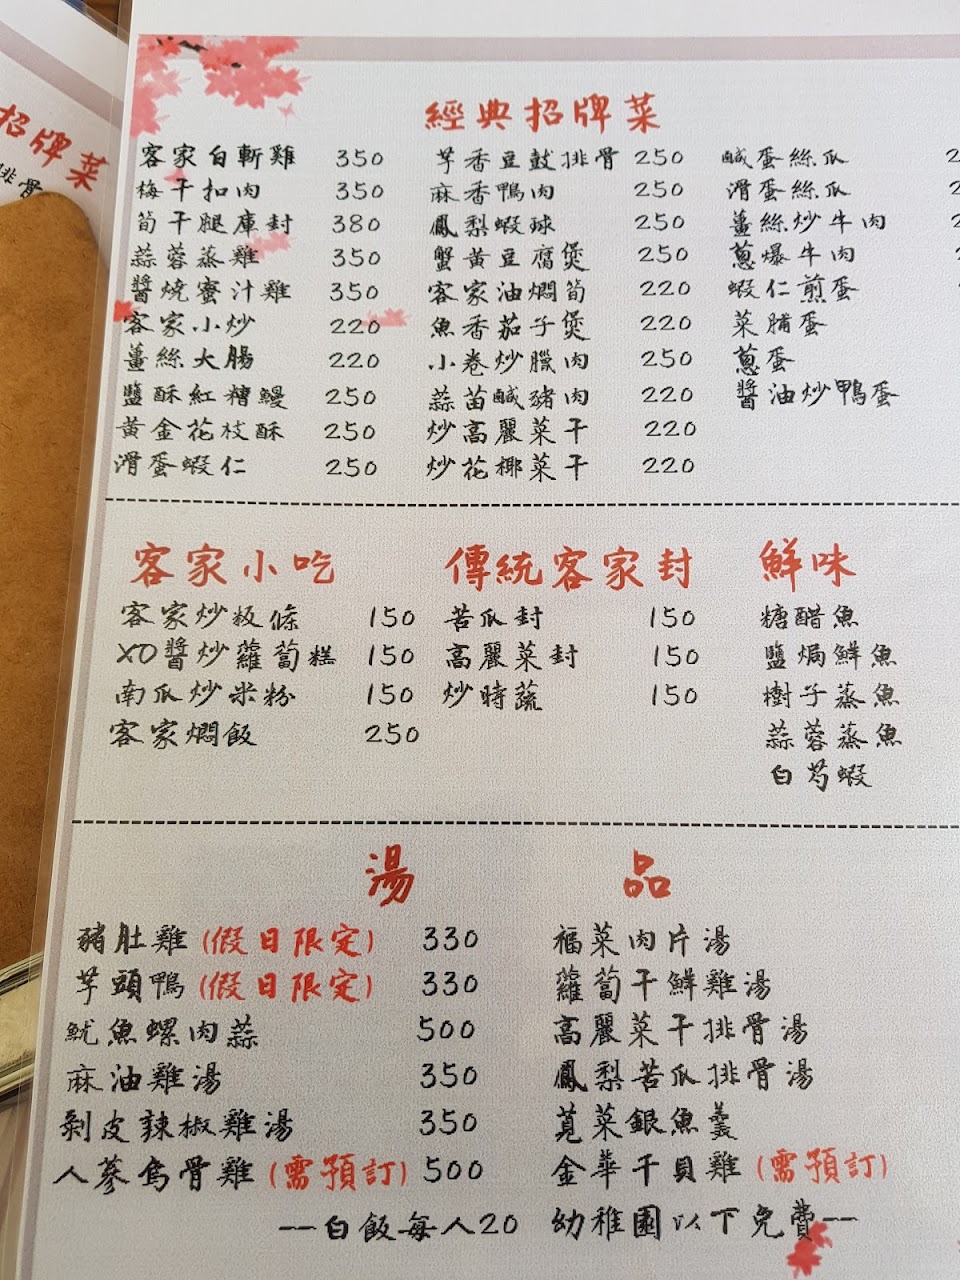 招牌菜
排骨
經典招牌菜
客家白斬雞 350
梅干扣肉 350
筍干腿庫封 380
蒜蓉蒸雞 350
醬燒蜜汁雞 350
客家小炒 220
薑絲大腸 220
鹽酥紅糟鰻 250
黃金花枝酥 250
滑蛋蝦仁 250
芋香豆鼓排骨 250
麻香鴨肉 250
鳳梨蝦球 250
蟹黃豆腐煲 250
客家油燜筍 220
魚香茄子煲 220
小卷炒臘肉 250
蒜苗鹹豬肉 220
炒高麗菜干 220
炒花椰菜干 220
鹹蛋絲瓜 2
滑蛋絲瓜 2
薑絲炒牛肉 2
蔥爆牛肉 2
蝦仁煎蛋
菜脯蛋
蔥蛋
醬油炒鴨蛋
客家小吃
客家炒粄條 150
XO醬炒蘿蔔糕 150
南瓜炒米粉 150
客家燜飯 250
傳統客家封
苦瓜封 150
高麗菜封 150
炒時蔬 150
鮮味
糖醋魚
鹽焗鮮魚
樹子蒸魚
蒜蓉蒸魚
白芍蝦
湯品
豬肚雞(假日限定) 330
芋頭鴨(假日限定) 330
魷魚螺肉蒜 500
麻油雞湯 350
剝皮辣椒雞湯 350
人蔘烏骨雞(需預訂) 500
福菜肉片湯
蘿蔔干鮮雞湯
高麗菜干排骨湯
鳳梨苦瓜排骨湯
莧菜銀魚羹
金華干貝雞(需預訂)
--白飯每人20 幼稚園以下免費--